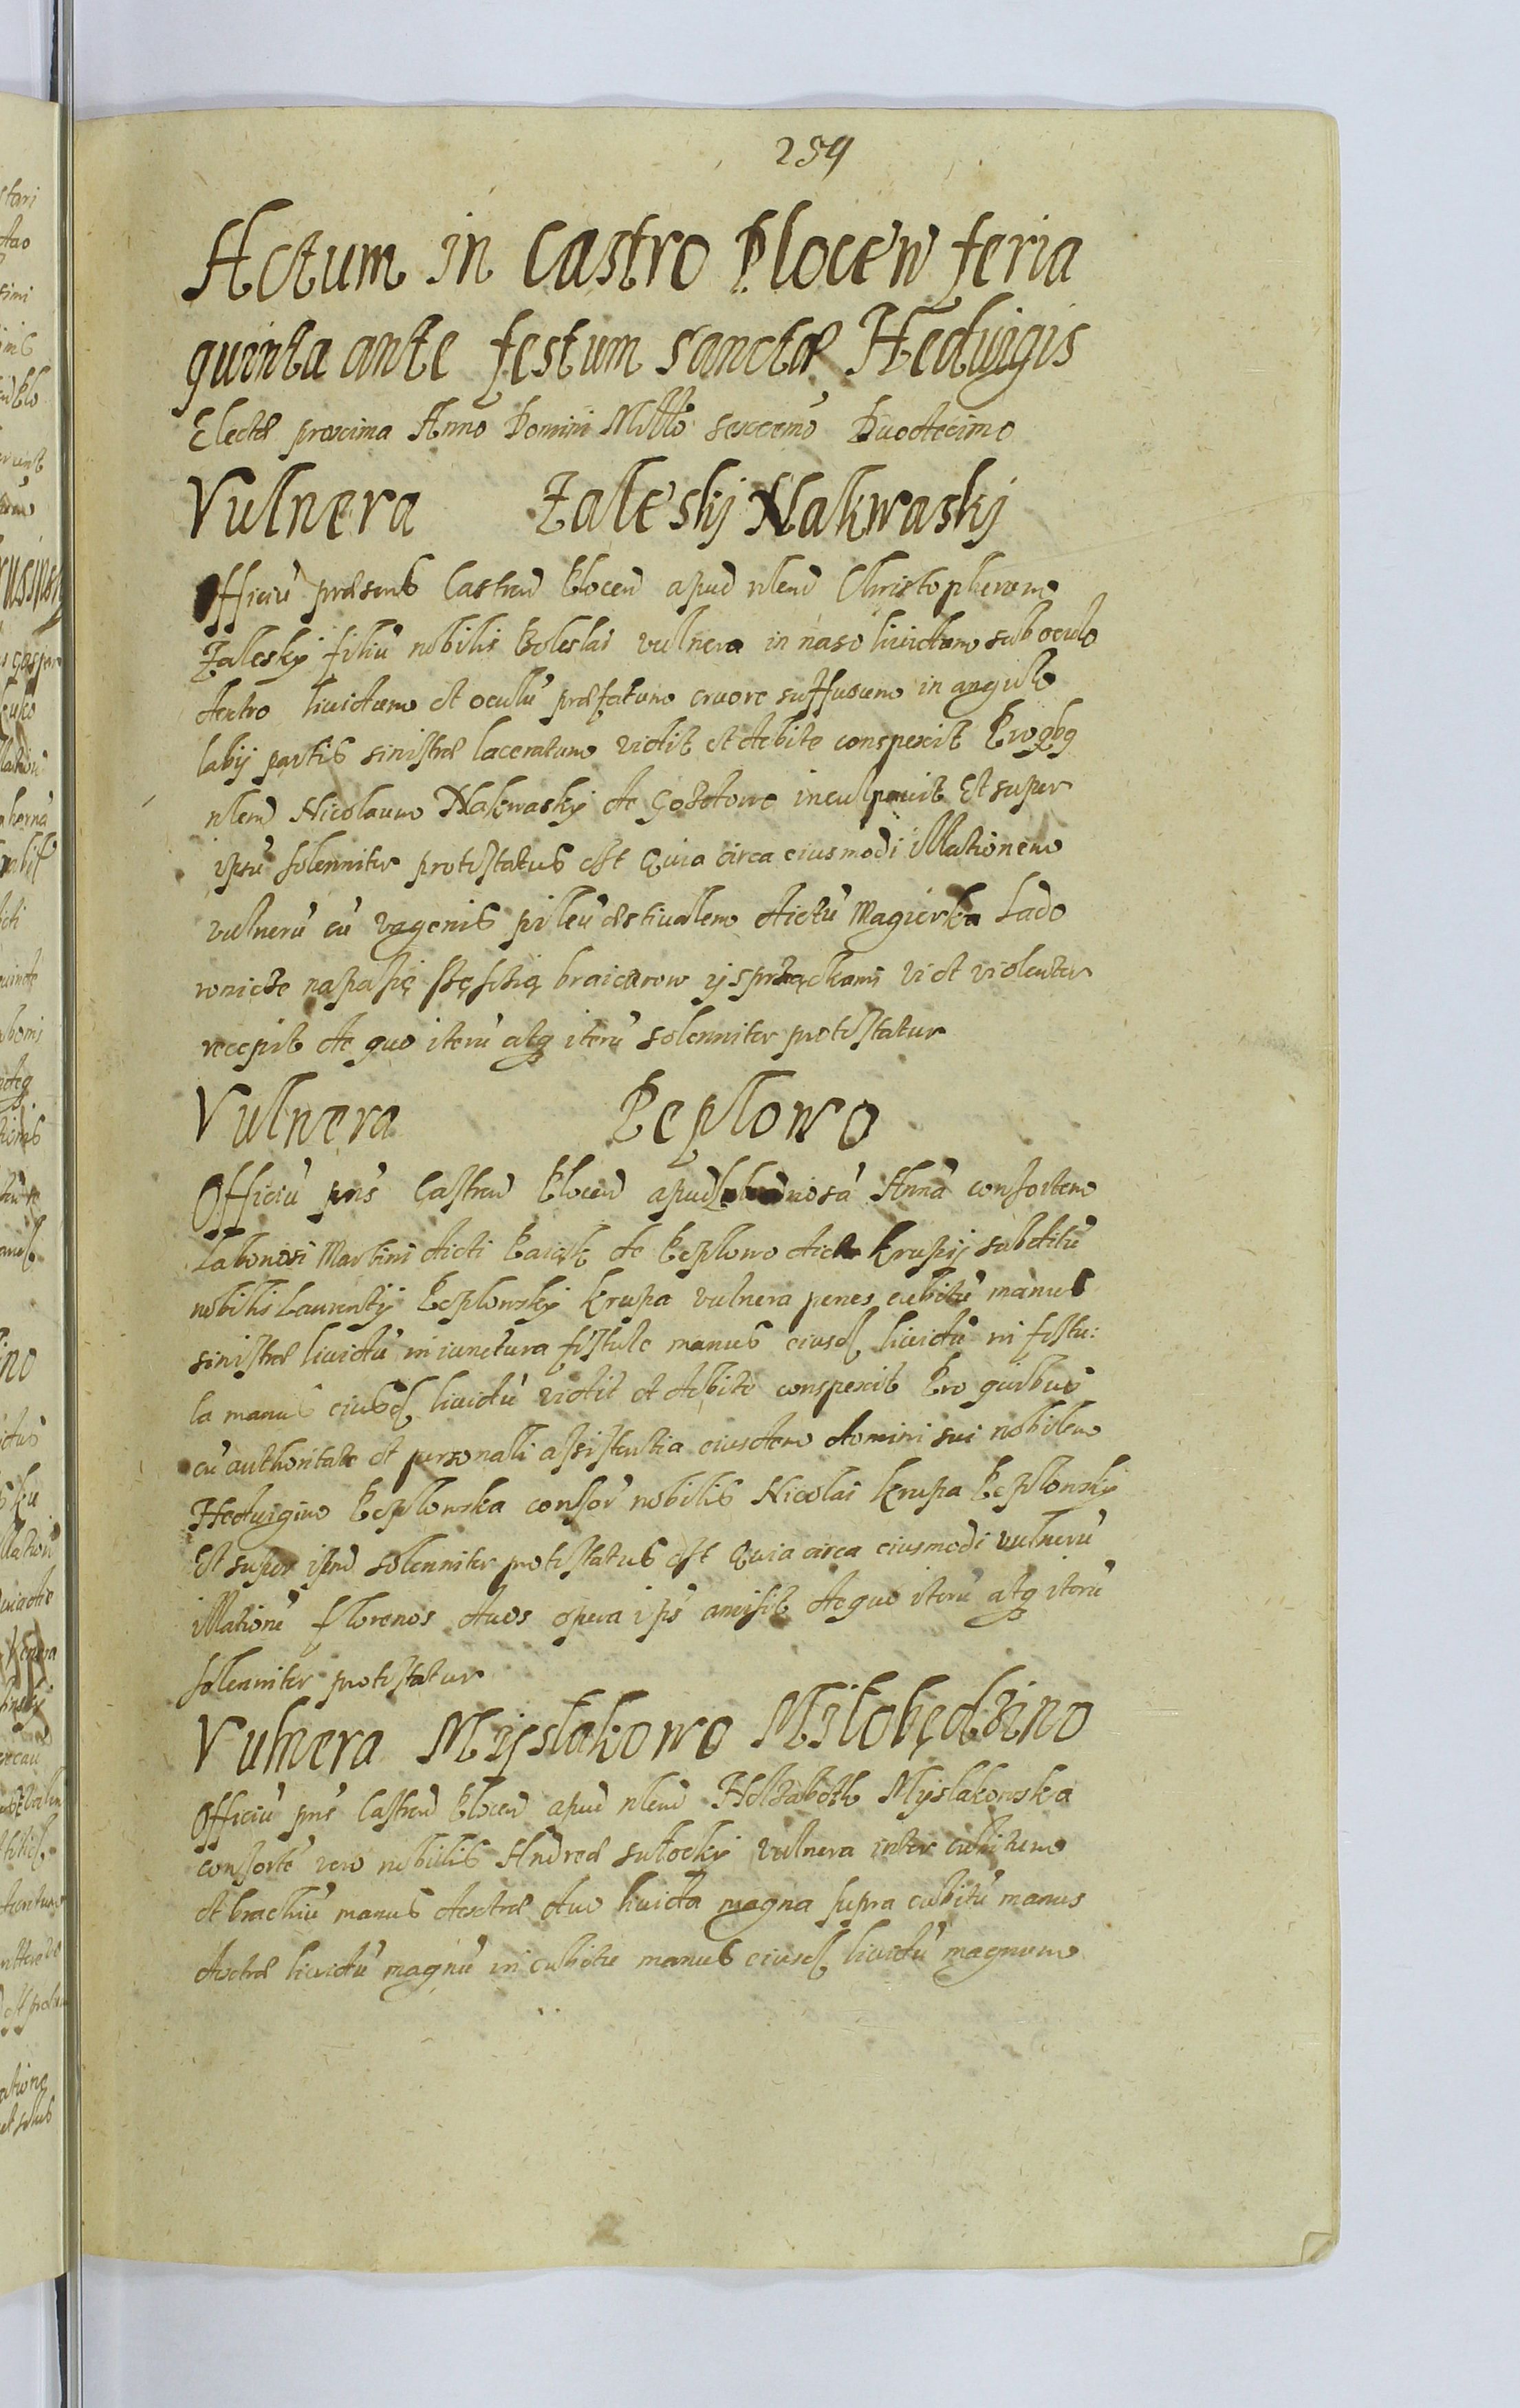 259
Actum in Castro Plocen feria
quinta ante festum sanctæ Heduigis
Electæ proxima Anno Domini Millo sexcemo Duodecimo
Vulnera Zaleskj Nakwaskj
Officiu præsens Castren Plocen apud nlem Christopherum
Zalesky filiu nobilis Boleslai vulnera in naso liuidum sub oculo
dextro liuidum et oculu præfatum cruore suffusum in angulo
labij partis sinistræ laceratum vidit et debite conspexit Pro qbq
nlem Nicolaum Nakwasky de Gozdowo inculpauit Et super
ipsu solenniter protestatus est Quia circa eiusmodi illationem
vulneru cu pileu æstiualem dictu Magierka Lado
wnicze napasię braiczarow y sprzączkami vi et violenter
recepit de quo iteru atq iteru solenniter protestatur
Vulnera Peplowo
Officiu pns Castren Plocen apud Anna consortem
Laboriosi Martini dicti de Peplowo dicta Krupij subditu
nobilis Laurentij Peplowsky Krupa vulnera penes cubitu manus
sinistræ liuidu in iunctura fistulæ manus eiusd liuidu in fistu:
la manus eiusd liuidu vidit et debite conspexit Pro quibus
cu authoritate et personali assistentia eiusdem domini sui nobilem
Heduigim Peplowska consor nobilis Nicolai Krupa Peplowsky
Et super ipsm solenniter protestatus est Quia circa eiusmodi vulneru
illatione florenos duos opera ips amisit de quo iteru atq iteru
solenniter protestatur
Vulnera Myslakowo Miłobędzino
Officiu pns Castren Plocen apud nlem Helzabeth Myslakowska
consorte vero nobilis Andreæ Sułocky vulnera inter cubitum
et brachiu manus dextræ duo liuida magna supra cubitu manus
dextræ liuidu magnu in cubitu manus eiusd liuidu magnum